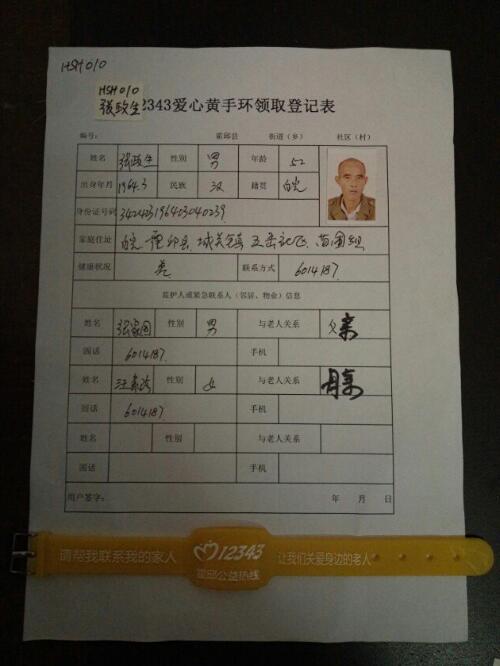 HSH010
HSH010
张政生
12343爱心黄手环领取登记表
编号： 霍邱县 街道（乡） 社区（村）
姓名 张政生 性别 男 年龄 52
出身年月 1964.3 民族 汉 籍贯 皖
身份证号码 342423196403040239
家庭住址 皖 霍邱县 城关镇
健康状况 差 联系方式 6014187
监护人或紧急联系人（邻居、物业）信息
姓名 张家国 性别 男 与老人关系 父亲
固话 6014187 手机
姓名 性别 女 与老人关系 母亲
固话 6014187 手机
姓名 性别 与老人关系
固话 手机
用户签字： 年 月 日
请帮我联系我的家人 12343 让我们关爱身边的老人
霍邱公益热线